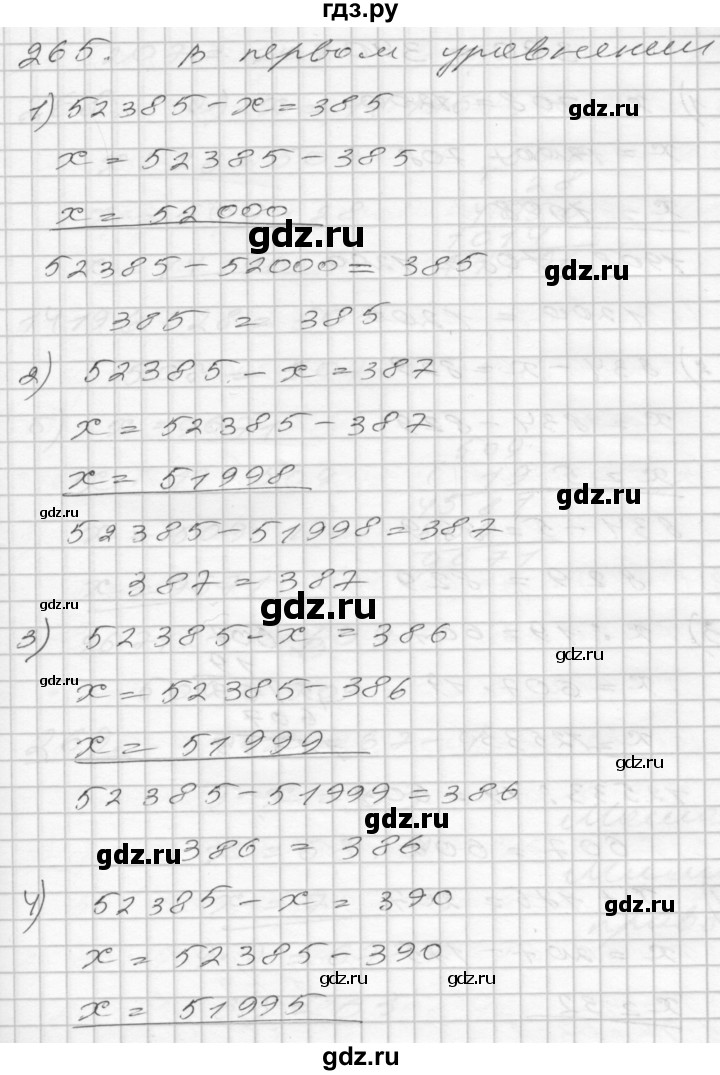 гдз.ру
265. В первом уравнении
1) 52385 - x = 385
gdz.ru
x = 52385 - 385
x = 52000
gdz.ru
52385 - 52000 = 385
gdz.ru
385 = 385
2) 52385 - x = 387
x = 52385 - 387
x = 51998
gdz.ru
gdz.ru
52385 - 51998 = 387
387 = 387
gdz.ru
gdz.ru
3) 52385 - x = 386
gdz.ru
gdz.ru
x = 52385 - 386
x = 51999
gdz.ru
52385 - 51999 = 386
gdz.ru
gdz.ru
386 = 386
4) 52385 - x = 390
gdz.ru
x = 52385 - 390
gdz.ru
gdz.ru
x = 51995
gdz.ru